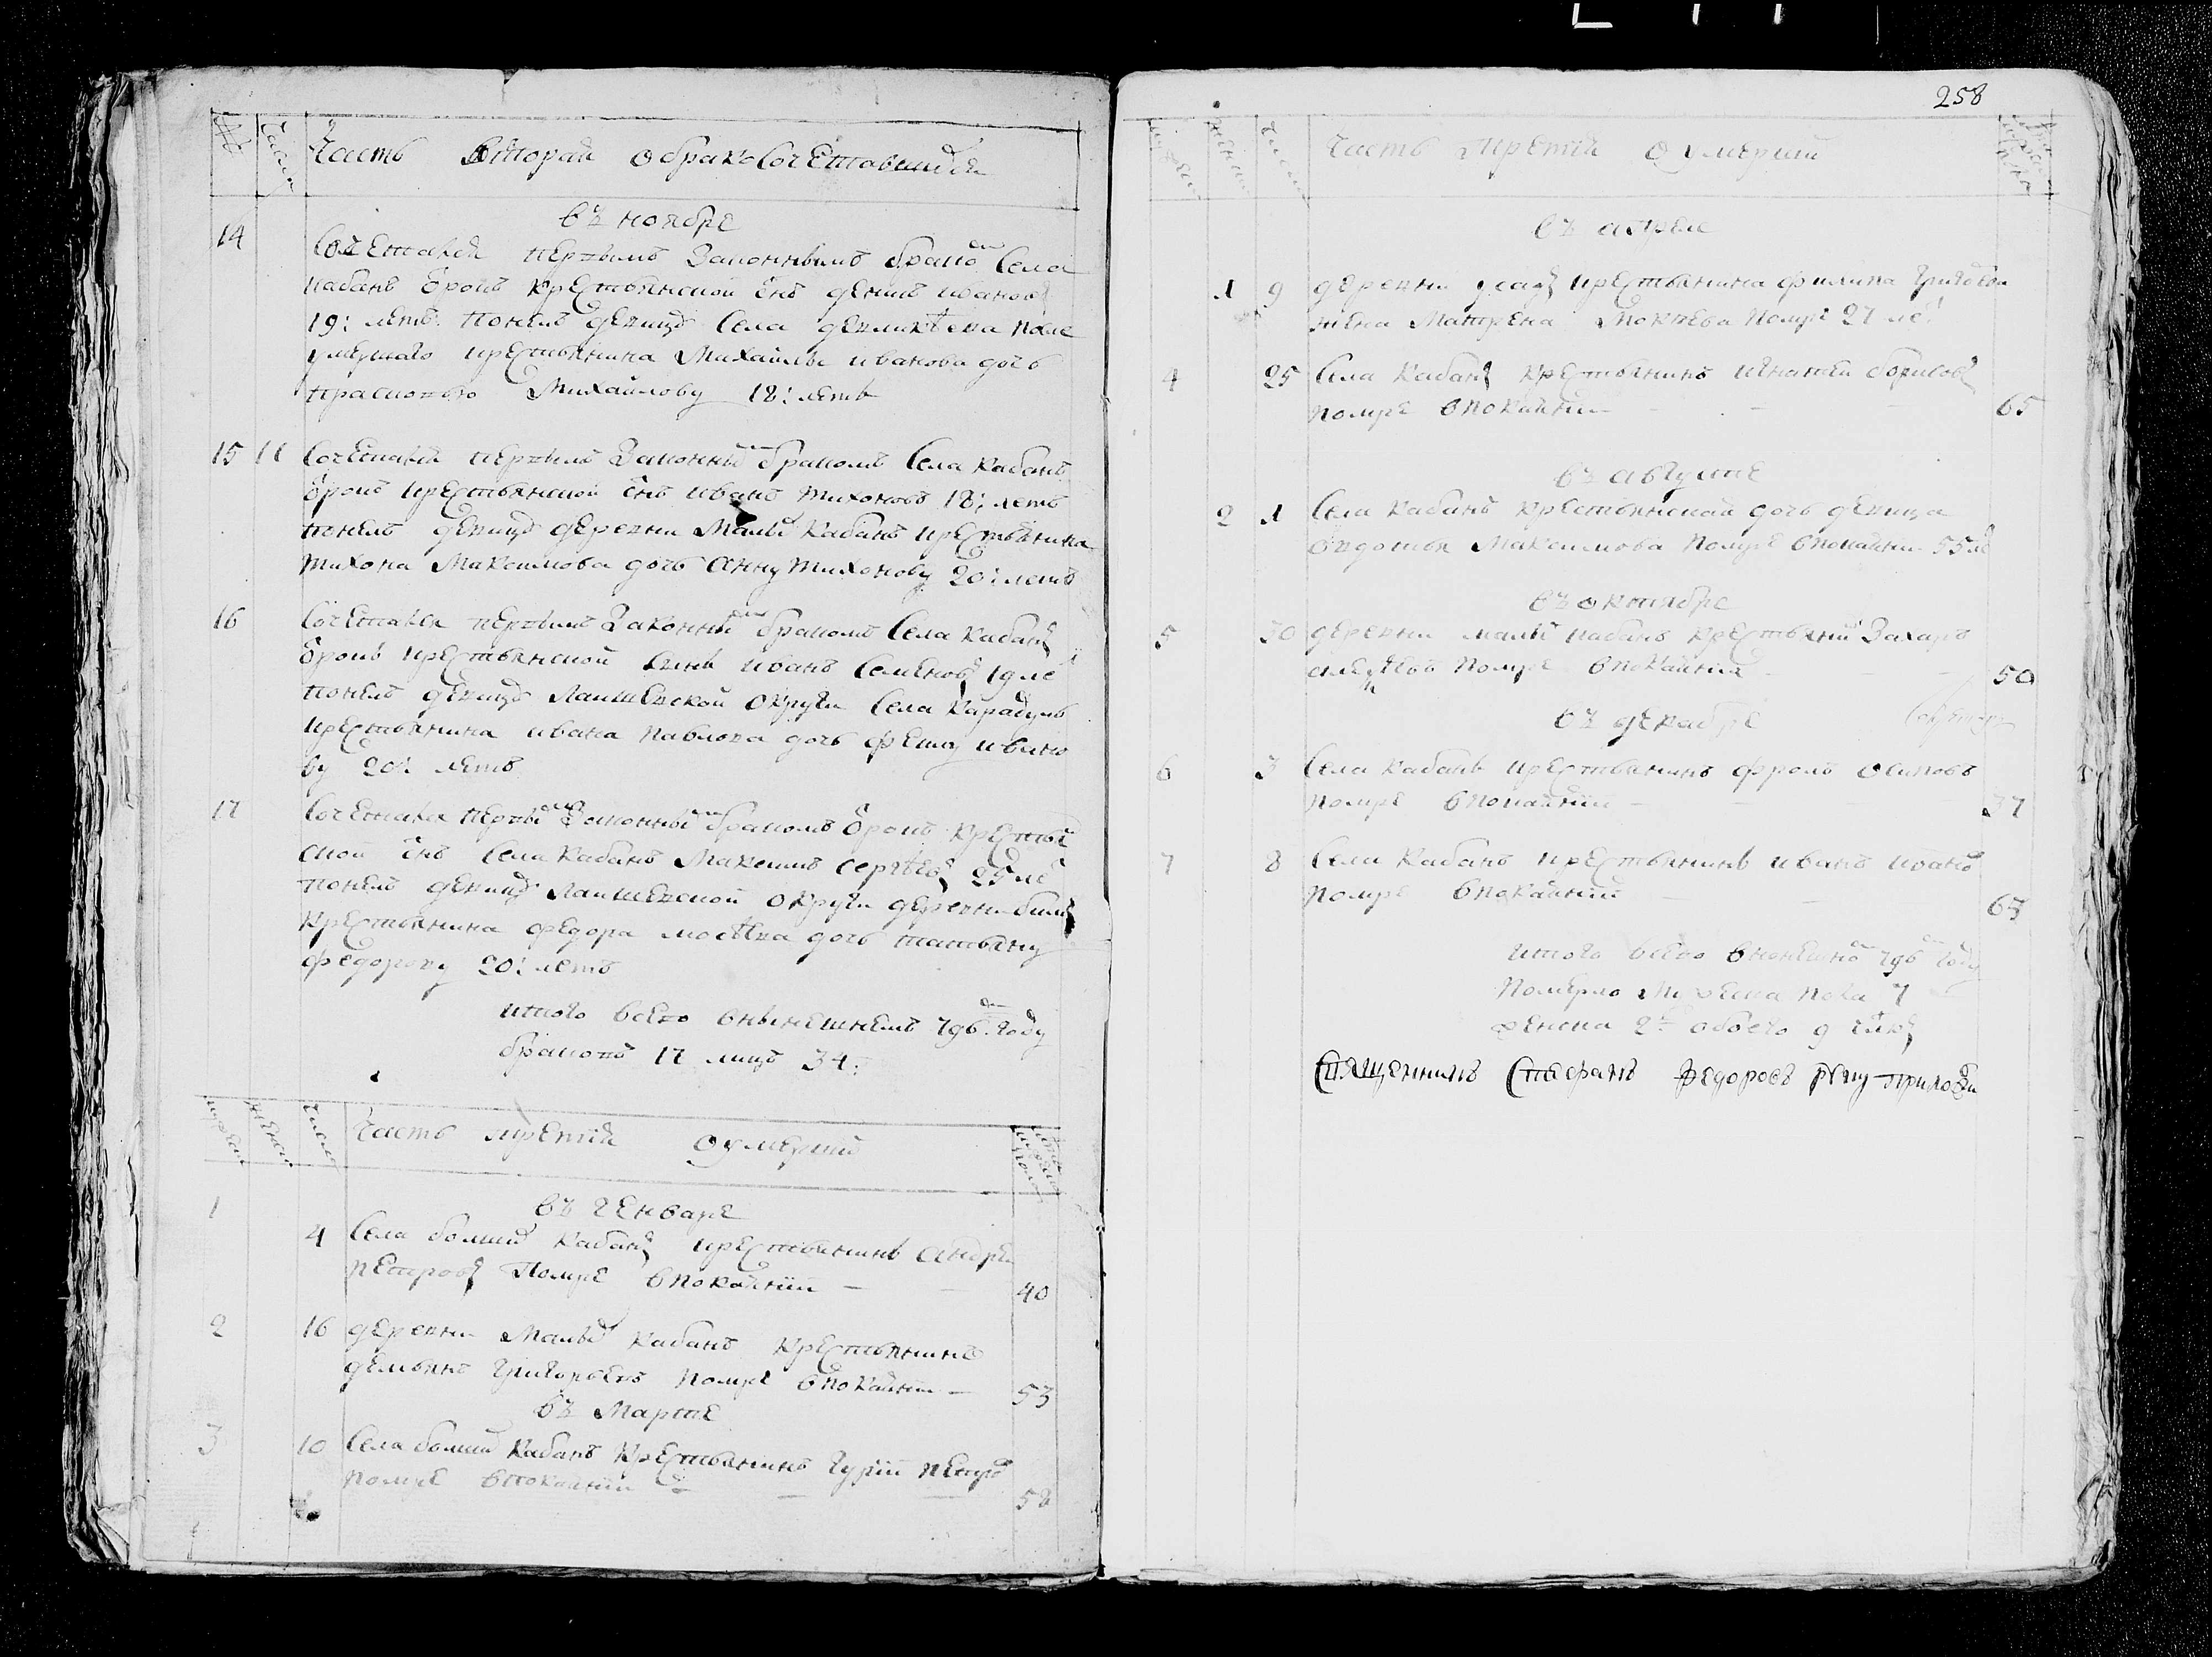 258
№
Числа
Часть вторая о бракосочетавшихся
въ ноябре
14
Сочетался первымъ законнымъ бракомъ села
кабанъ отрокъ крестьянской снъ денисъ иванов
19: летъ понелъ девицу села
умершаго крестьянина Михаилы иванова дочь
прасковью Михайлову 18: летъ
15 11 Сочетался первымъ законнымъ бракомъ села кабанъ
отрокъ крестьянской снъ иванъ тихоновъ 18: летъ
понелъ девицу деревни Малыхъ кабанъ крестьянина
тихона Максимова дочь анну тихонову 20: летъ
16 Сочетался первымъ законнымъ бракомъ села кабанъ
отрокъ крестьянской сынъ иванъ семенов 19 ле
понелъ девицу лаишевской округи села карадулъ
крестьянина ивана павлова дочь ивано
ву 20: летъ
17 Сочетался первымъ законнымъ бракомъ отрокъ крестьян
ской снъ села кабанъ Максимъ сергѣев 25 ле
понелъ девицу лаишевской округи деревни
крестьянина федора дочь татьяну
федорову 20: летъ
итого всего внынешнемъ 796 году
браковъ 17 лицъ 34:
мужеск
женск
числа
Часть третия о умершихъ
въ генваре
1
4 села болшихъ кабанъ крестьянинъ андре
петров помре впокаянии — 40
2 16 деревни Малыхъ кабанъ крестьянинъ
демьянъ григорьевъ помре впокаянии — 53
въ Марте
3 10 села болших кабанъ крестьянинъ гурий петров
помре впокаянии — 58
мужеск
женск
числа
Часть третия о умерших
въ апреле
1 9 деревни крестьянина филипа григорьева
жена Матрена помре 27 ле
4 25 села кабанъ крестьянинъ игнатей борисов
помре впокаянии — 65
въ августе
2 1 села кабанъ крестьянская дочь девица
евдотья Максимова помре впокаянии 55 ле
въ октябре
5 30 деревни малыхъ кабанъ крестьянинъ Захаръ
помре впокаянии — 50
въ декабре
6 3 села кабанъ крестьянинъ фролъ осиповъ
помре впокаянии — 37
7 8 села кабанъ крестьянинъ иванъ ивановъ
помре впокаянии
итого всего внонешномъ 796 году
померло мужеска пола 7
женска 2 обоего 9
Священникъ Стефанъ Федоровъ руку приложи